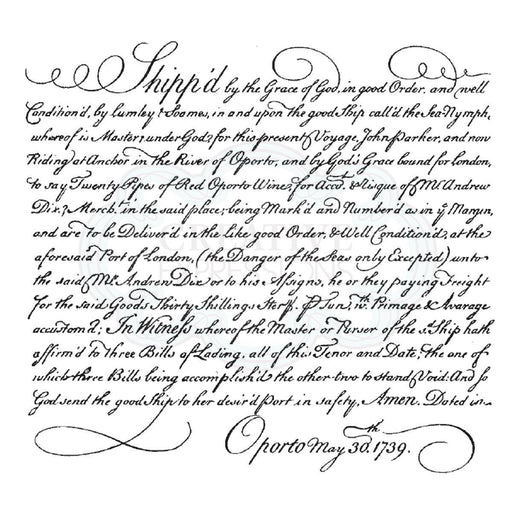 Shipp'd by the Grace of God, in good Order, and well
Condition'd, by Lumley & Soames, in and upon the good Ship call'd the Sea-Nymph,
whereof is Master, under God, for this present Voyage, John Parker, and now
Riding at Anchor in the River of Oporto, and by God's Grace bound for London,
to say Twenty Pipes of Red Oporto Wine, for Acct. & Risque of Mr. Andrew
Dix, Mercht. in the said place; being Mark'd and Number'd as in ye Margin,
and are to be Deliver'd in the like good Order, & Well Condition'd, at the
aforesaid Port of London, (the Danger of the Seas only Excepted) unto
the said Mr. Andrew Dix or to his Assigns, he or they paying Freight
for the said Goods Thirty Shillings Sterg. Tun, wt. Primage & Avarage
accustom'd; In Witness whereof the Master or Purser of the sd. Ship hath
affirm'd to three Bills of Lading, all of this Tenor and Date; the one of
which three Bills being accomplish'd the other two to stand Void: And so
God send the good Ship to her desir'd Port in safety, Amen. Dated in
Oporto May 30th. 1739.
CREATIVE
EXPRESSIONS